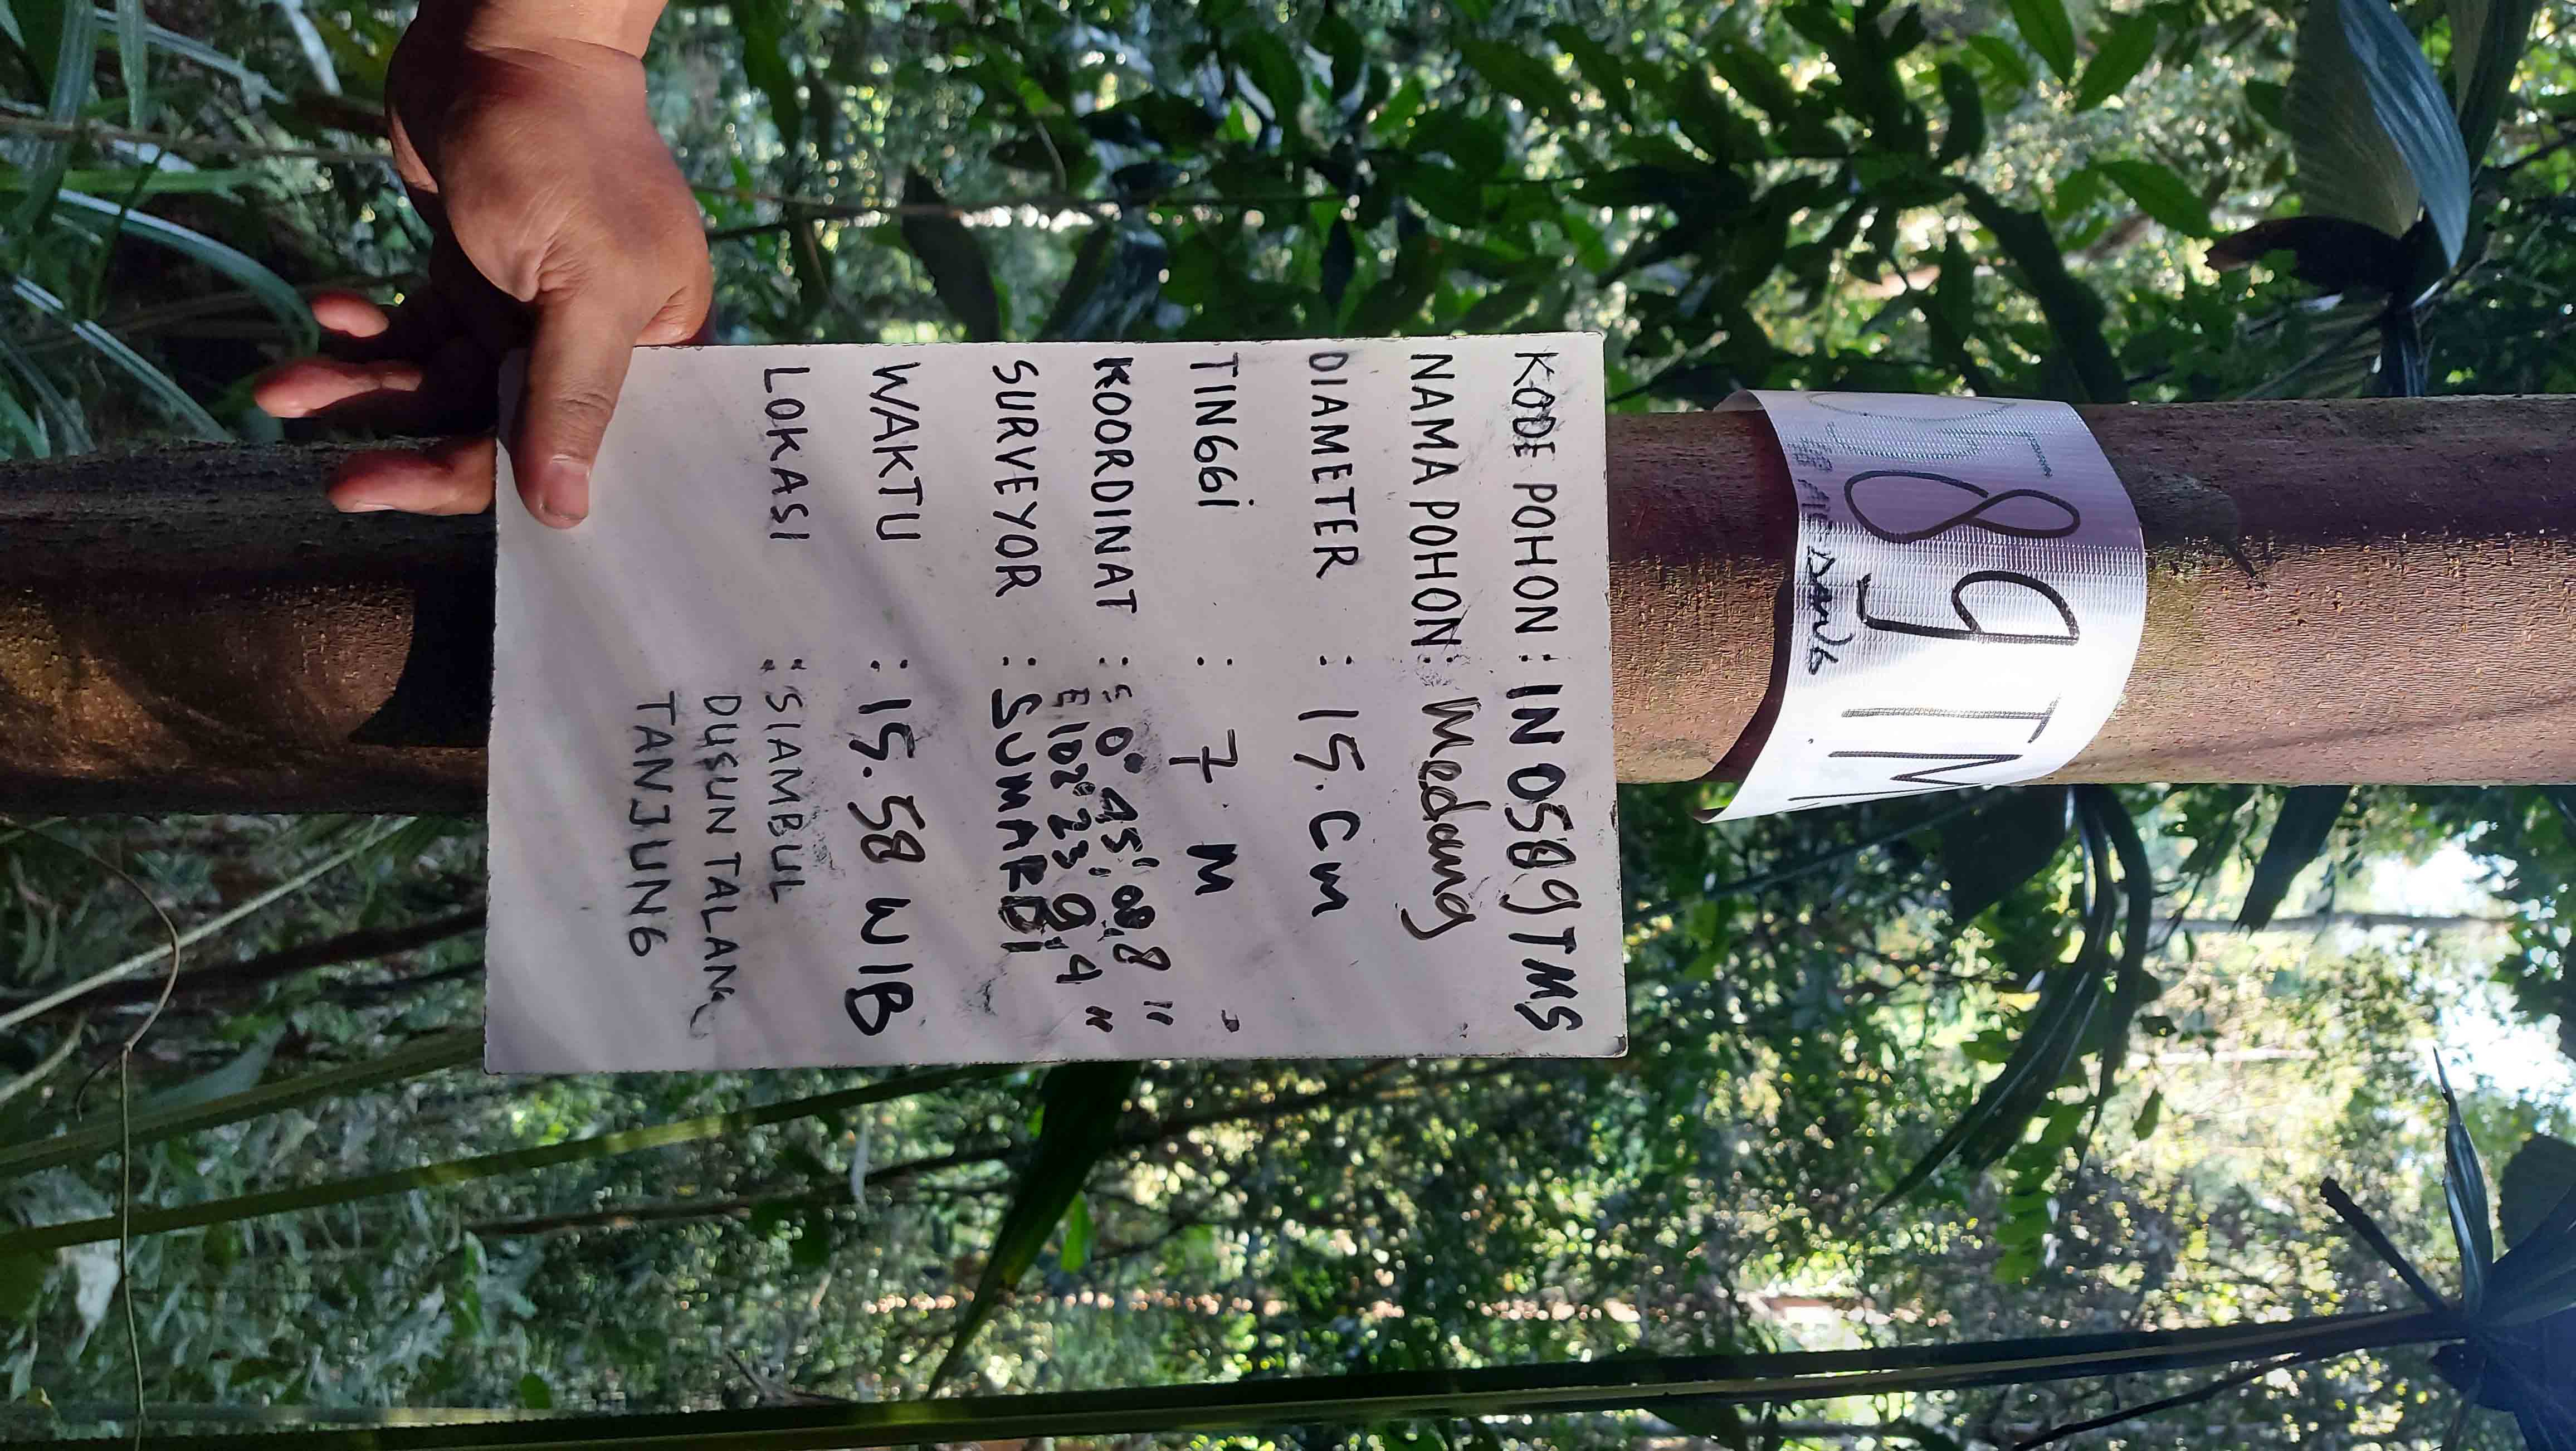 589 TM
SANG
KODE POHON : IN 0589 TMS
NAMA POHON : Medang
DIAMETER : 15. Cm
TINGGi : 7 M
KOORDINAT : S 0° 45' 08,8 "
E 102° 23' 9,4 "
SURVEYOR : SUMARDI
WAKTU : 15.58 WIB
LOKASI : SIAMBUL
DUSUN TALANG
TANJUNG